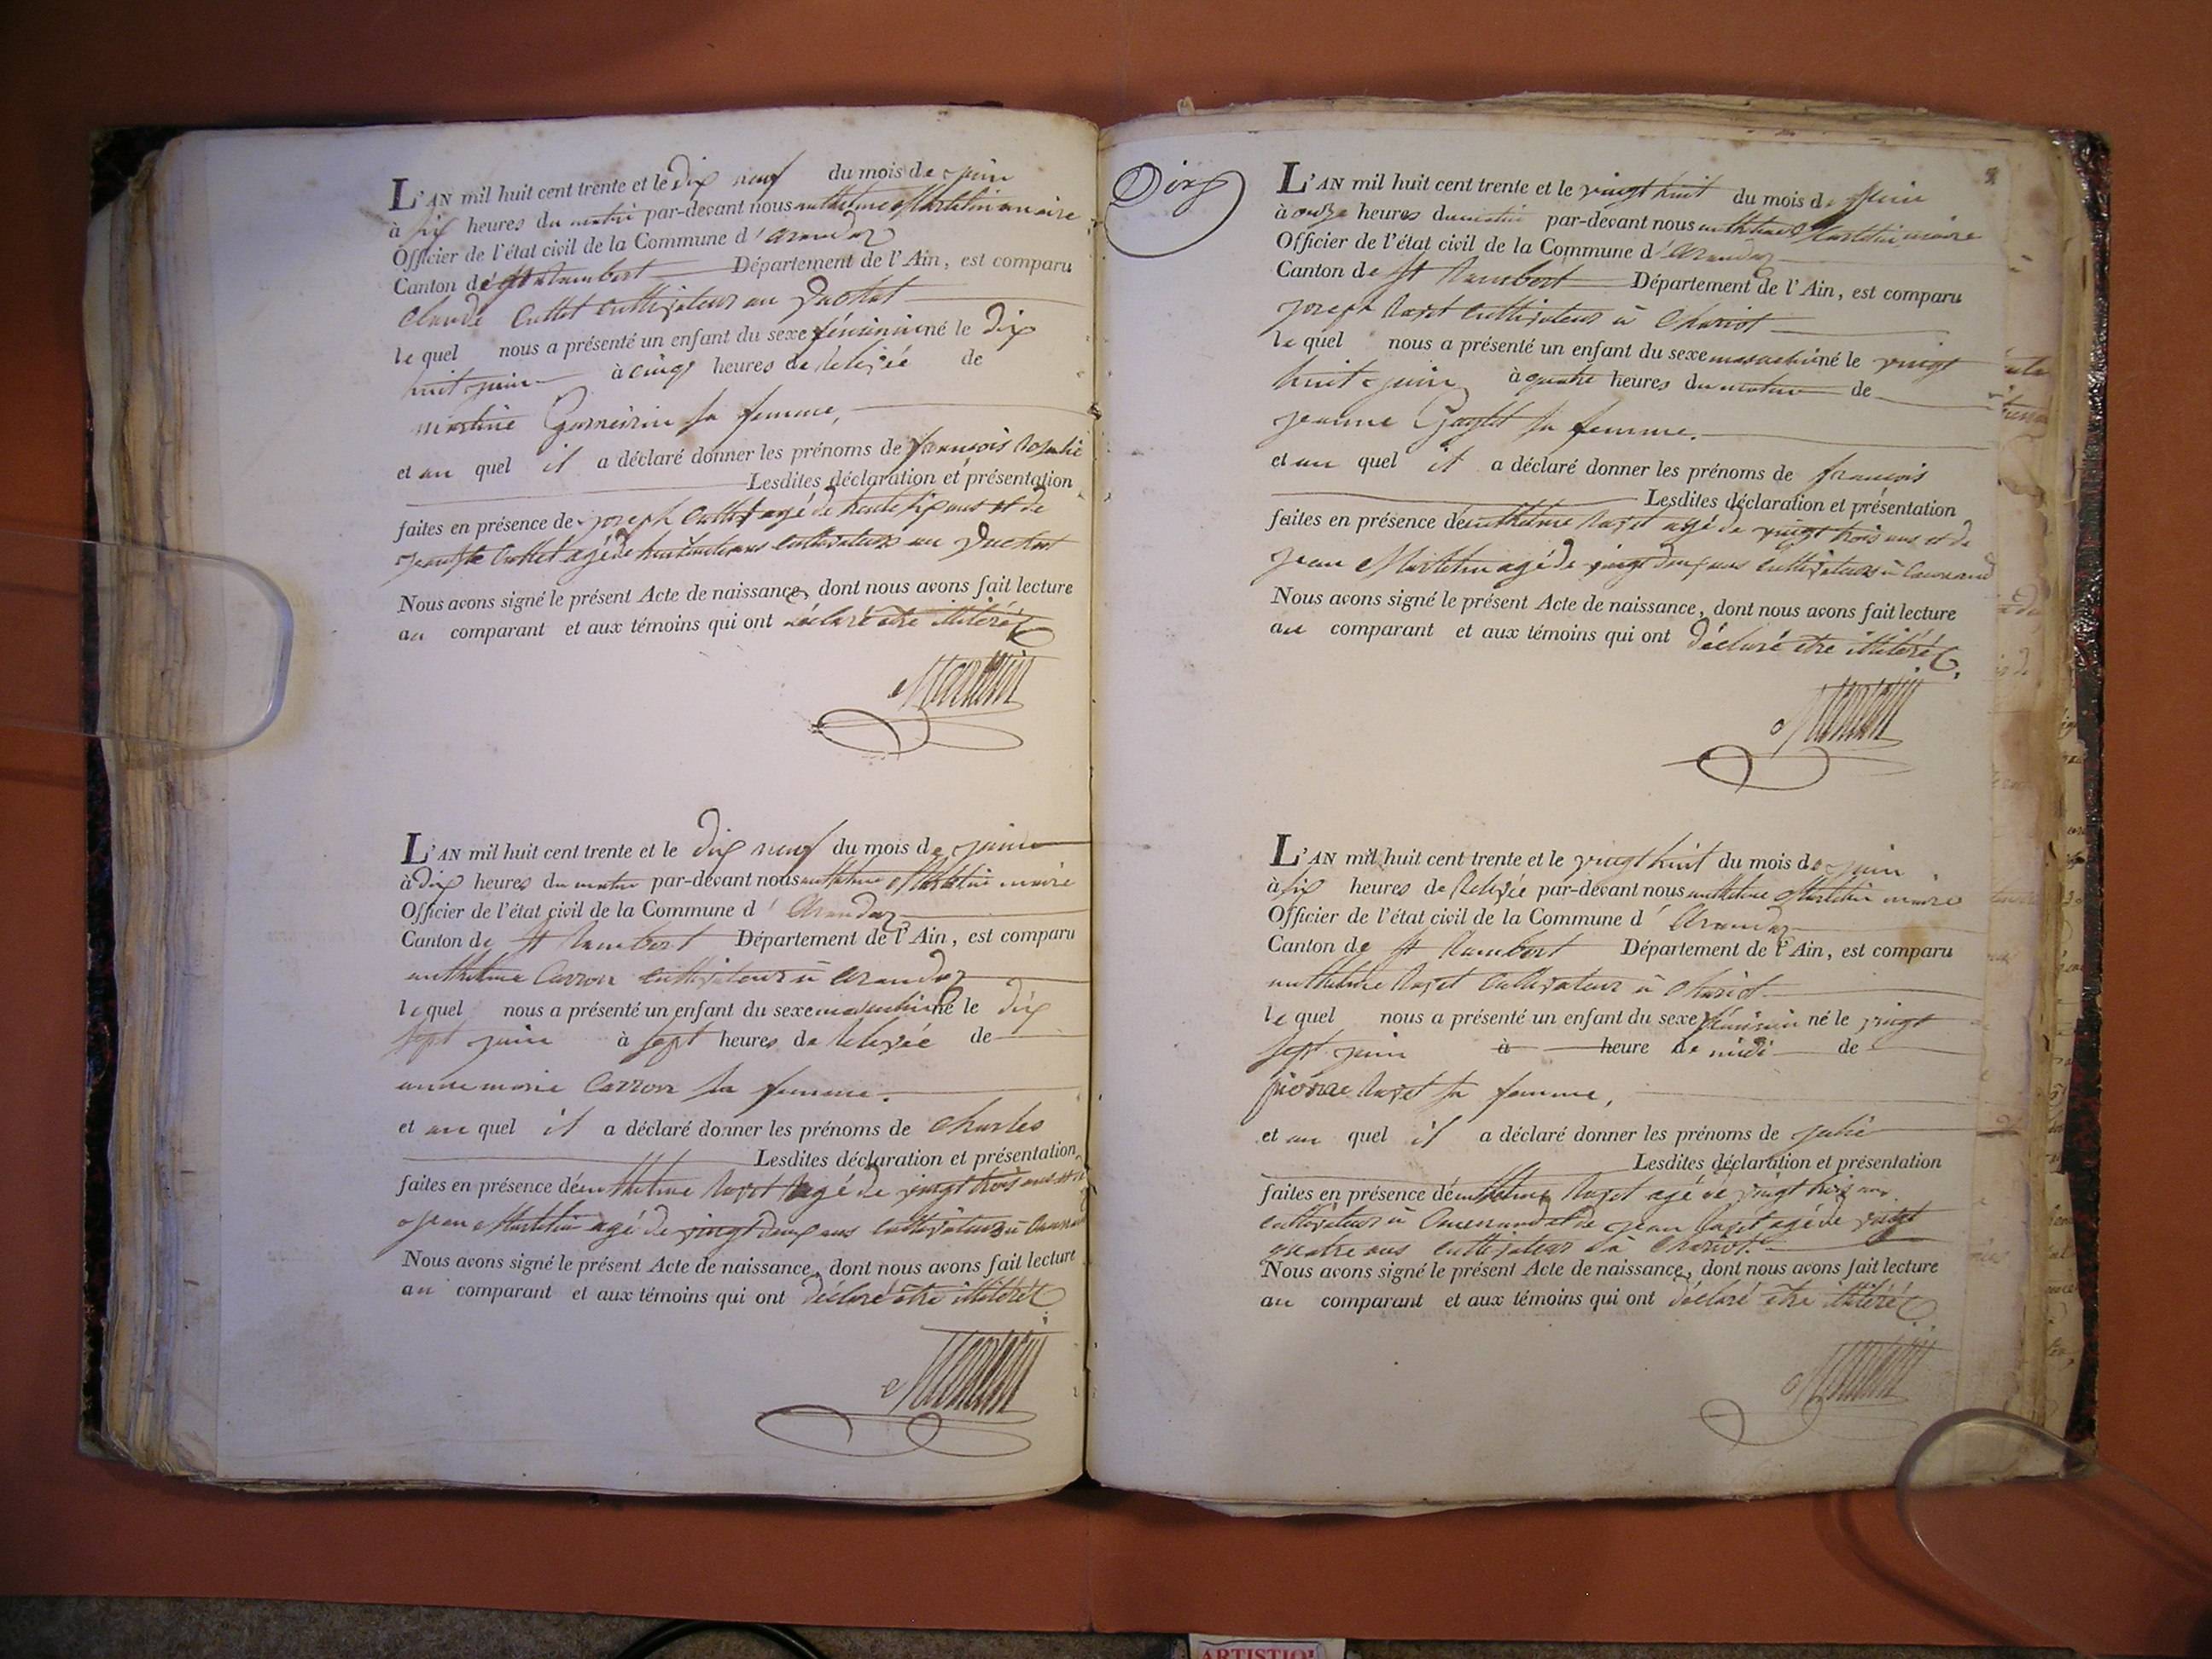 L'AN mil huit cent trente et le dix neuf du mois de juin
à six heures du matin par-devant nous anthelme Martelin maire
Officier de l'état civil de la Commune d'arandaz
Canton de St Rambert Département de l'Ain, est comparu
Claude Cultet cultivateur au
le quel nous a présenté un enfant du sexe féminin né le dix
huit juin à cinq heures de relevée de
martine sa femme,
et au quel il a déclaré donner les prénoms de françois
Lesdites déclaration et présentation
faites en présence de joseph Cultet agé de trente six ans et de
Cultet agé de ans cultivateurs au
Nous avons signé le présent Acte de naissance, dont nous avons fait lecture
au comparant et aux témoins qui ont déclaré être illitérés
L'AN mil huit cent trente et le dix neuf du mois de juin
à dix heures du matin par-devant nous anthelme Martelin maire
Officier de l'état civil de la Commune d'Arandaz
Canton de St Rambert Département de l'Ain, est comparu
anthelme Carron cultivateur à arandaz
le quel nous a présenté un enfant du sexe masculin né le dix
sept juin à sept heures de relevée de
anne marie Carron sa femme.
et au quel il a déclaré donner les prénoms de Charles
Lesdites déclaration et présentation
faites en présence de anthelme agé de vingt trois ans et de
jean Martelin agé de vingt deux ans cultivateurs à
Nous avons signé le présent Acte de naissance, dont nous avons fait lecture
au comparant et aux témoins qui ont déclaré être illitérés
Dix
L'AN mil huit cent trente et le vingt huit du mois de juin
à onze heures du matin par-devant nous anthelme Martelin maire
Officier de l'état civil de la Commune d'Arandaz
Canton de St Rambert Département de l'Ain, est comparu
joseph cultivateur à Chariot
le quel nous a présenté un enfant du sexe masculin né le vingt
huit juin à quatre heures du matin de
jeanne sa femme.
et au quel il a déclaré donner les prénoms de françois
Lesdites déclaration et présentation
faites en présence de anthelme agé de vingt trois ans et de
jean Martelin agé de vingt deux ans cultivateurs à
Nous avons signé le présent Acte de naissance, dont nous avons fait lecture
au comparant et aux témoins qui ont déclaré être illitérés
L'AN mil huit cent trente et le vingt huit du mois de juin
à six heures de relevée par-devant nous anthelme Martelin maire
Officier de l'état civil de la Commune d'Arandaz
Canton de St Rambert Département de l'Ain, est comparu
anthelme cultivateur à Chariot
le quel nous a présenté un enfant du sexe féminin né le vingt
sept juin à heure de midi de
pierrae sa femme,
et au quel il a déclaré donner les prénoms de julie
Lesdites déclaration et présentation
faites en présence de anthelme agé de vingt trois ans
cultivateur à et de jean agé de vingt
quatre ans cultivateur à Chariot.
Nous avons signé le présent Acte de naissance, dont nous avons fait lecture
au comparant et aux témoins qui ont déclaré être illitérés